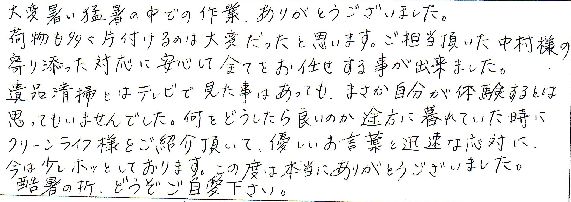 大変暑い猛暑の中での作業、ありがとうございました。
荷物も多く片付けるのは大変だったと思います。ご担当頂いた中村様の
寄り添った対応に安心して全てをお任せする事が出来ました。
遺品清掃とはテレビで見た事はあっても、まさか自分が体験するとは
思ってもいませんでした。何をどうしたら良いのか途方に暮れていた時に
クリーンライフ様をご紹介頂いて、優しいお言葉と迅速な応対に、
今は少しホッとしております。この度は本当にありがとうございました。
酷暑の折、どうぞご自愛下さい。